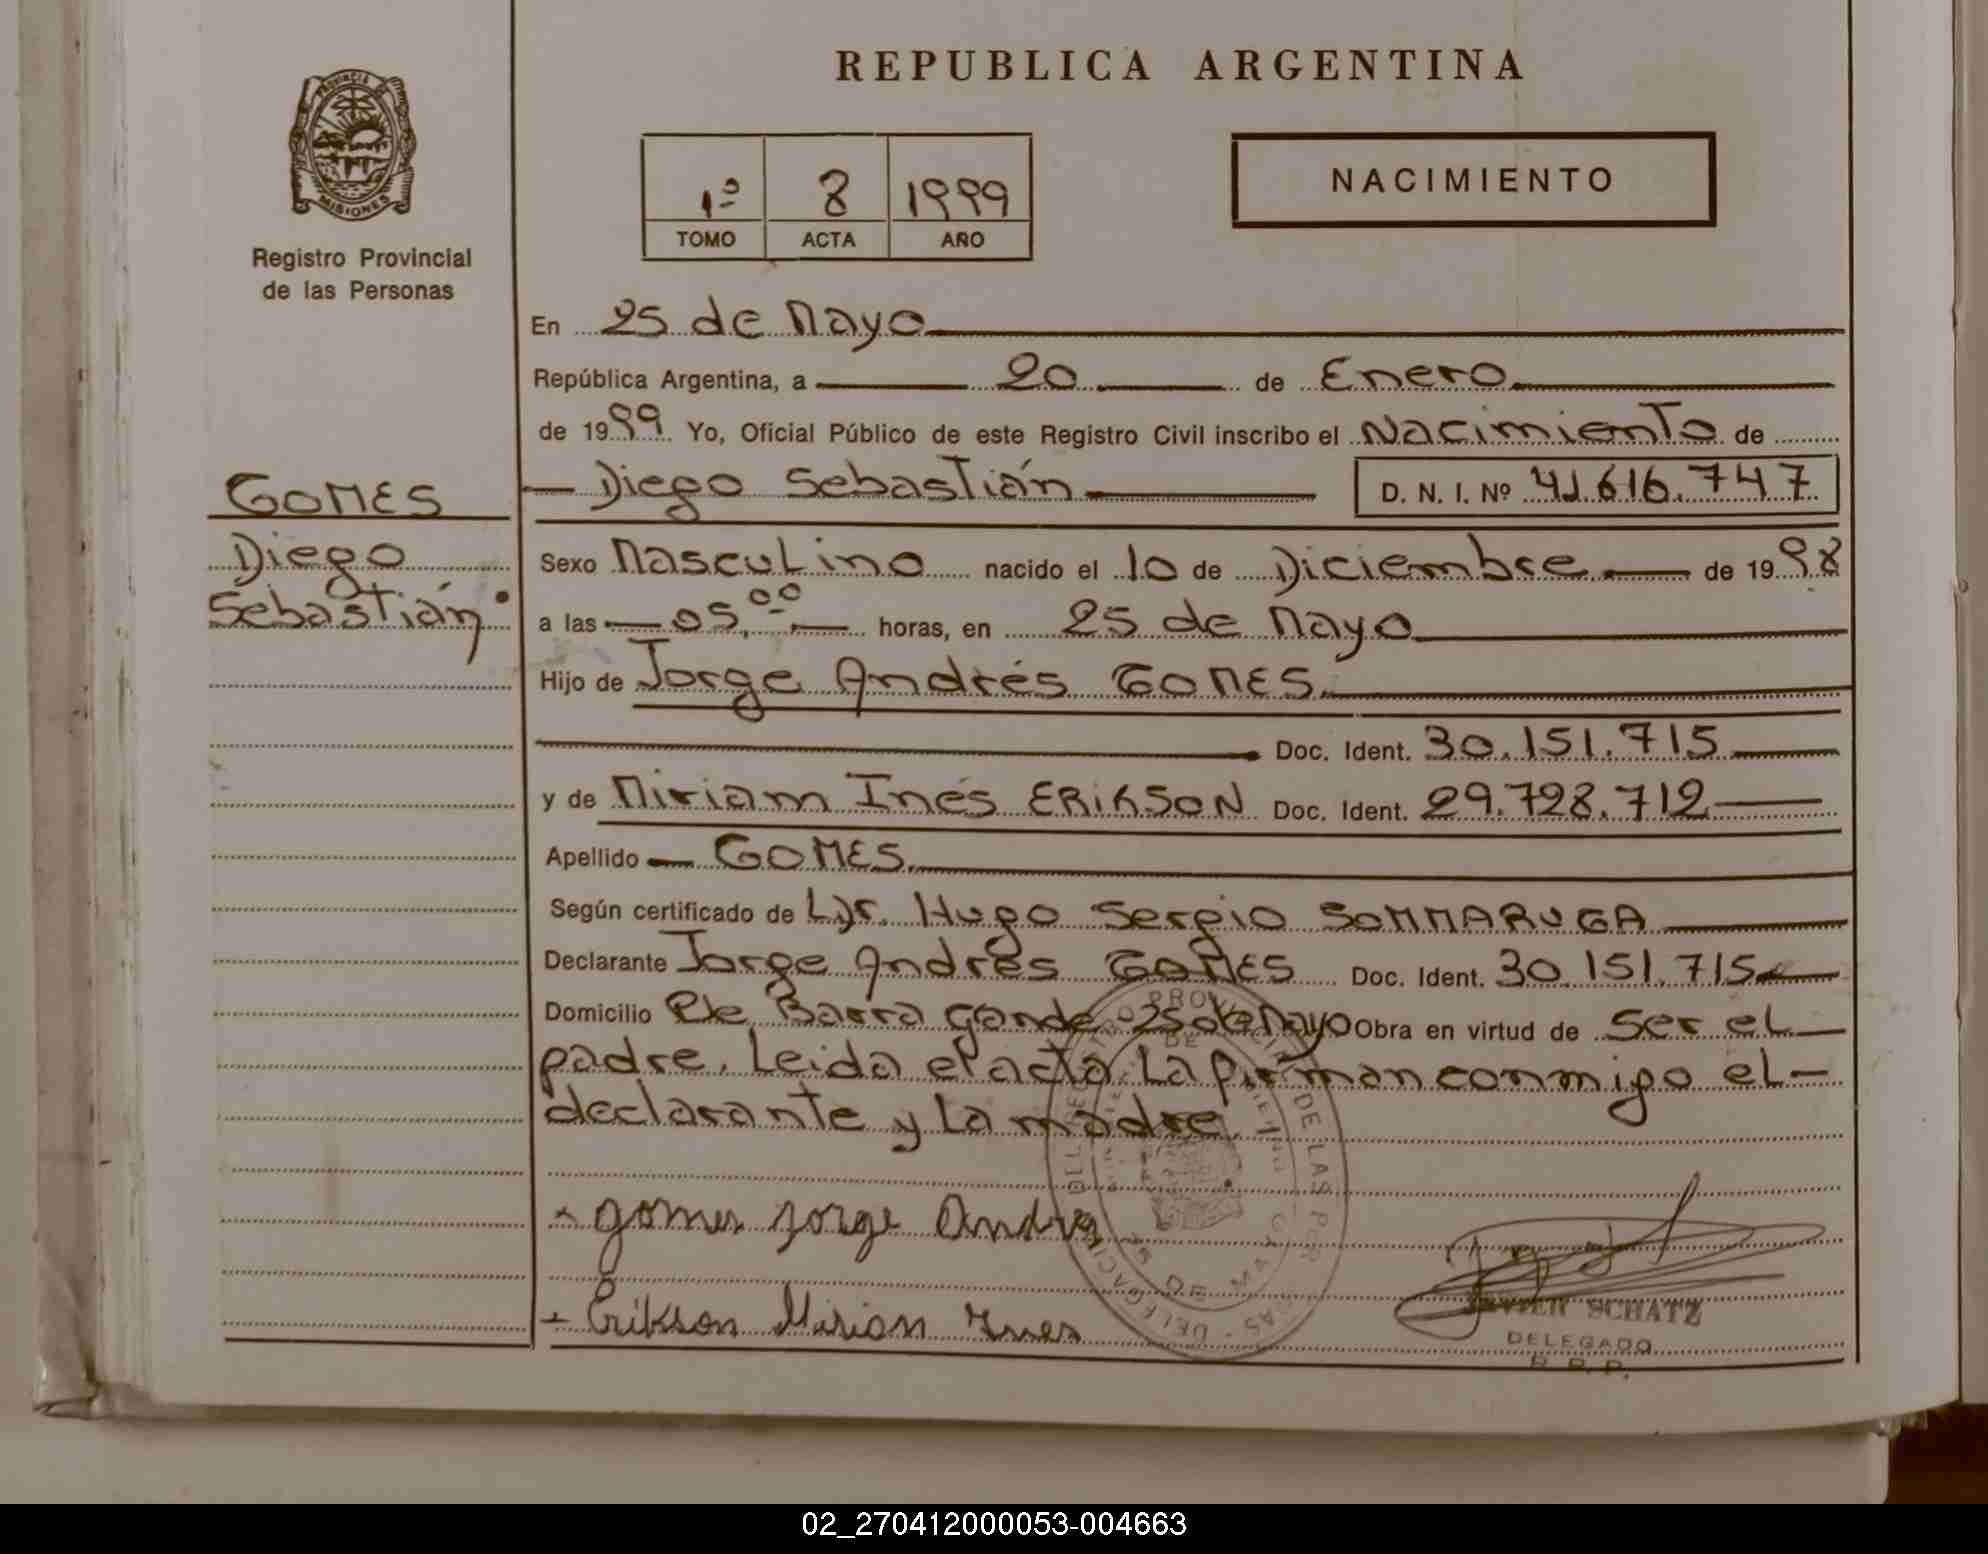 REPUBLICA ARGENTINA
PROVINCIA DE MISIONES
Registro Provincial
de las Personas
1º 8 1999
TOMO ACTA AÑO
NACIMIENTO
En 25 de Mayo
República Argentina, a 20 de Enero
de 1999 Yo, Oficial Público de este Registro Civil inscribo el Nacimiento de
Diego Sebastián D. N. I. Nº 41.616.747
GOMES
Diego
Sebastián
Sexo Masculino nacido el 10 de Diciembre de 1998
a las 05,00 horas, en 25 de Mayo
Hijo de Jorge Andrés GOMES
Doc. Ident. 30.151.715
y de Miriam Inés ERIKSON Doc. Ident. 29.728.712
Apellido GOMES
Según certificado de Dr. Hugo Sergio SOMMARUGA
Declarante Jorge Andrés GOMES Doc. Ident. 30.151.715
Domicilio Pje Barra Grande 25 de Mayo Obra en virtud de ser el
padre. Leida el acta La firman conmigo el
declarante y La madre.
gomes jorge Andres
Erikson Mirian Ynes
JAVIER SCHATZ
DELEGADO
R. P. P.
02_270412000053-004663